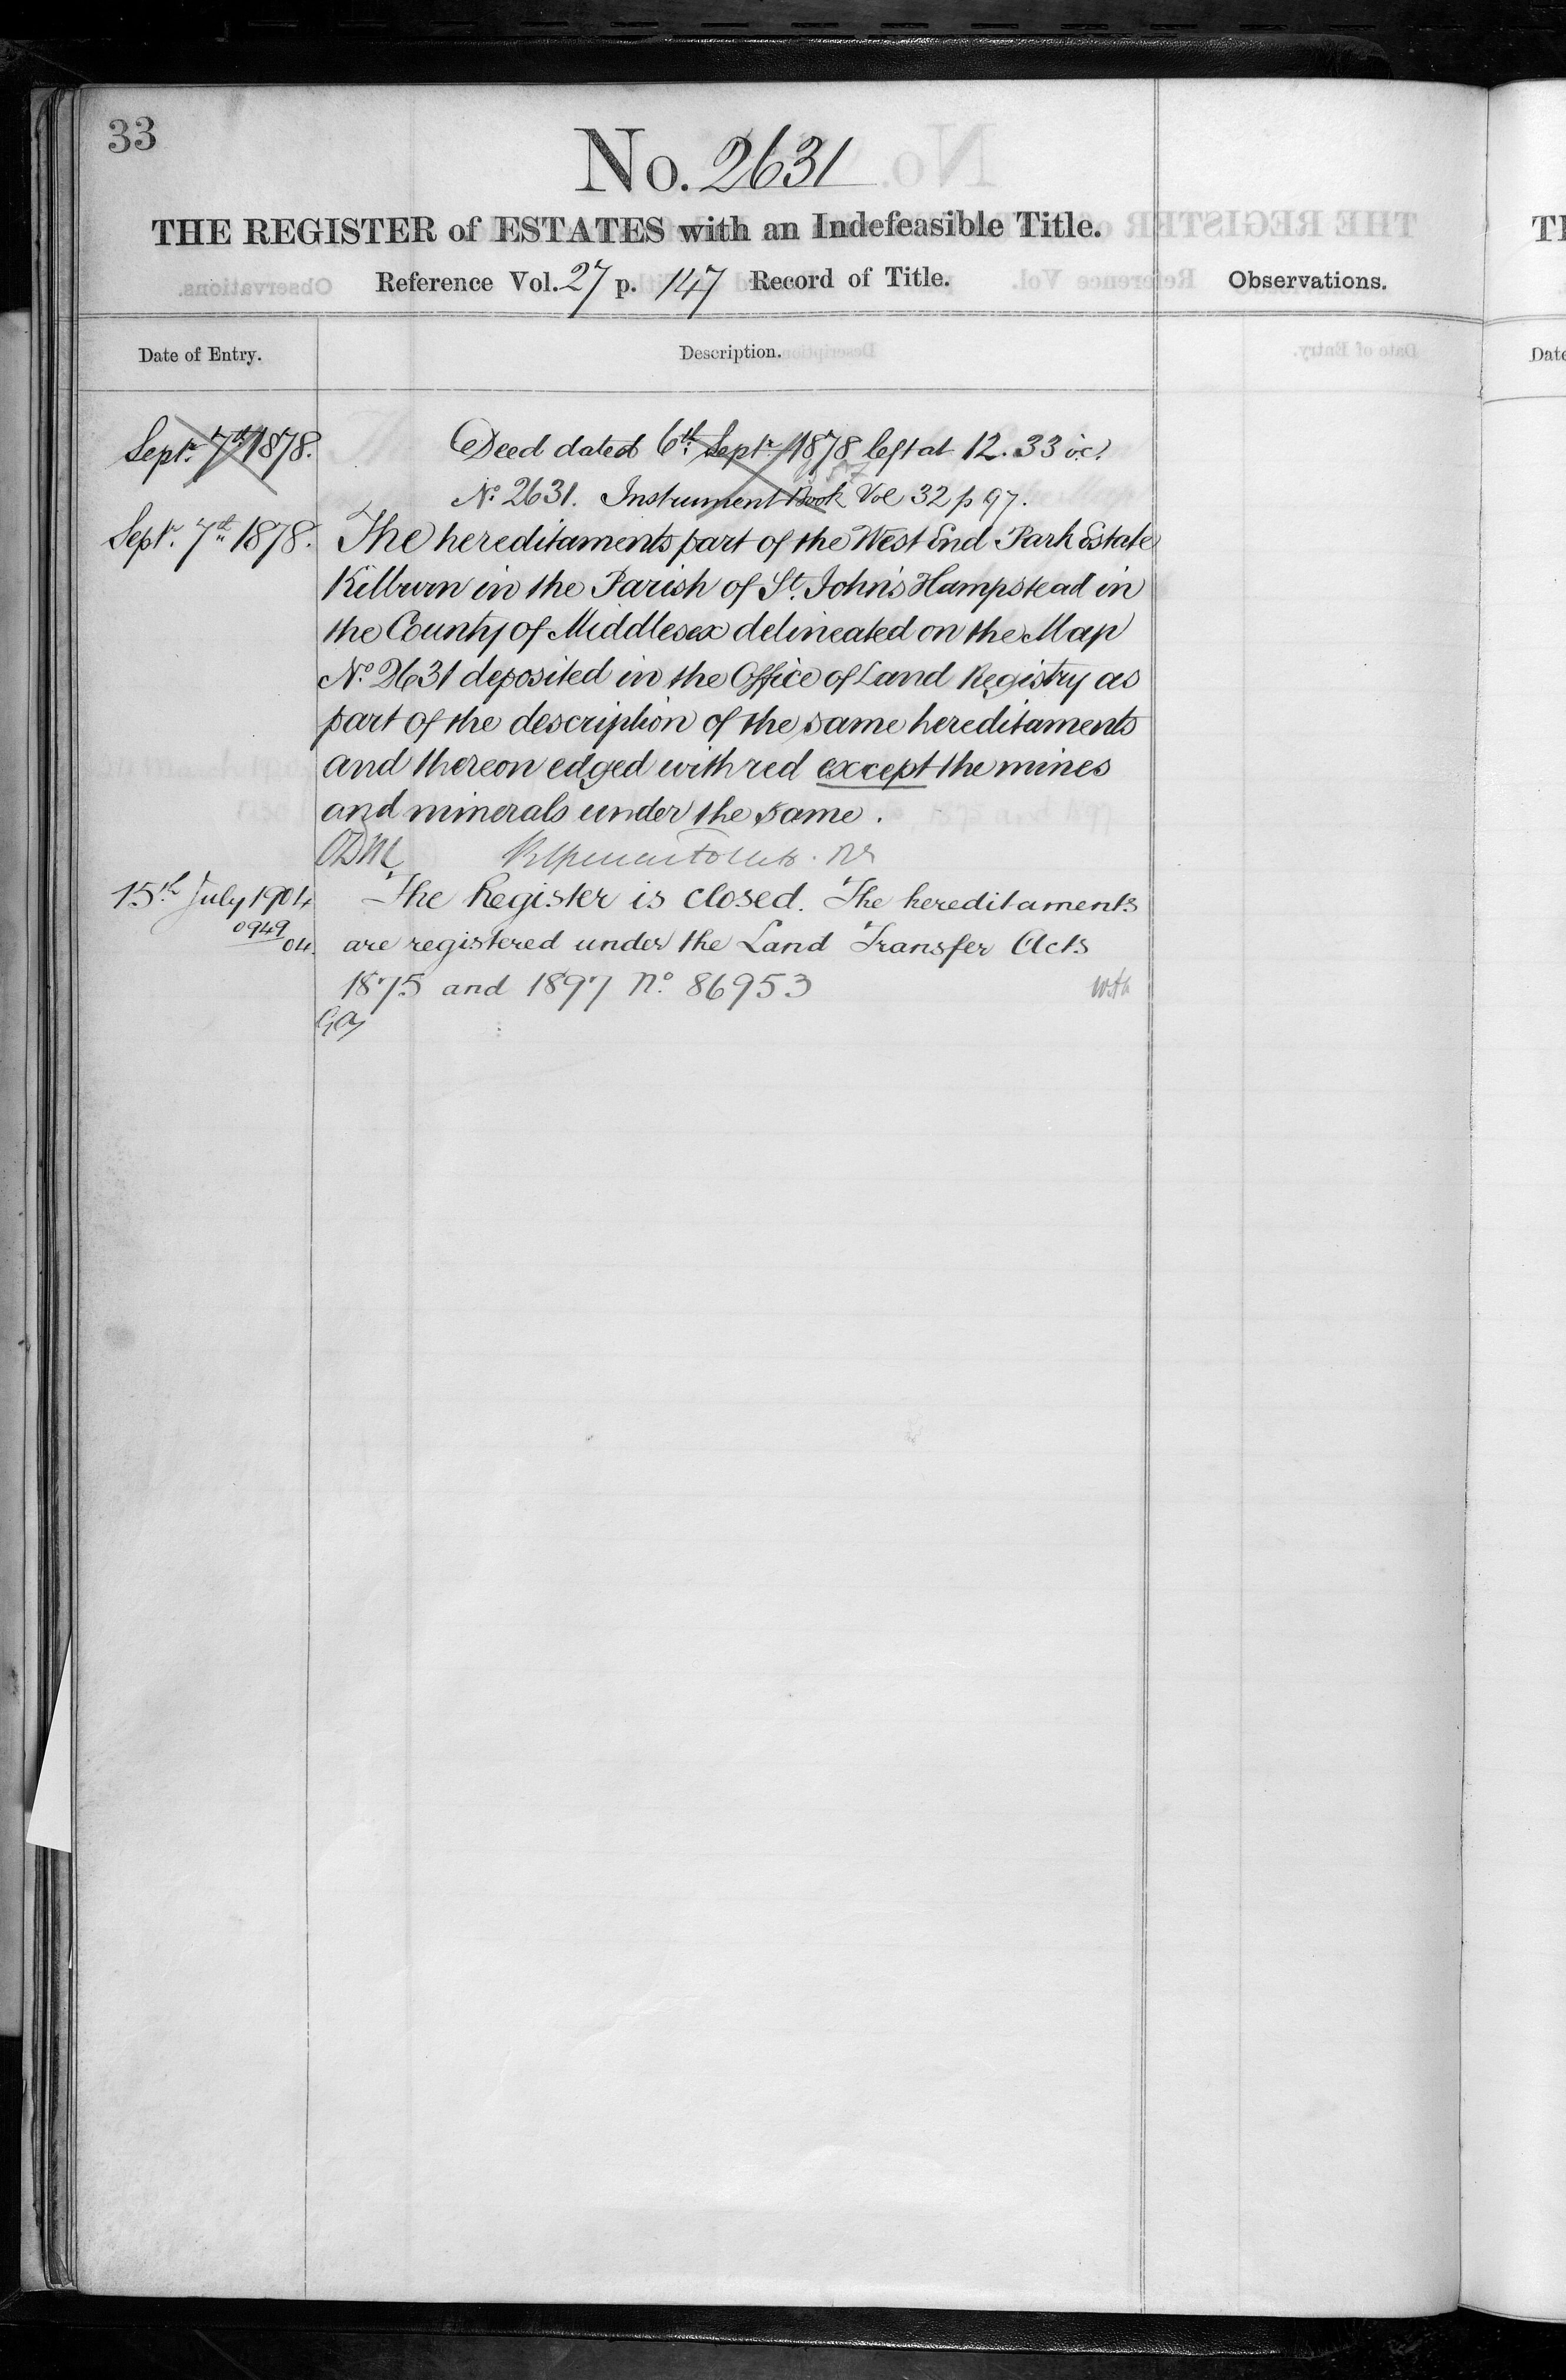 33
No. 2631
THE REGISTER of ESTATES with an Indefeasible Title.
Reference Vol. 27 p. 147 Record of Title.
Observations.
Date of Entry.
Description.
Septr. 7th 1878.
Deed dated 6th Septr. 1878 left at 12.33 o.c.
No. 2631. Instrument Book Vol 32 p 97.
Septr. 7th 1878.
The hereditaments part of the West End Park Estate
Kilburn in the Parish of St. John's Hampstead in
the County of Middlesex delineated on the Map
No. 2631 deposited in the Office of Land Registry as
part of the description of the same hereditaments
and thereon edged with red except the mines
and minerals under the same.
15th July 1904
0949
04.
The Register is closed. The hereditaments
are registered under the Land Transfer Acts
1875 and 1897 No. 86953